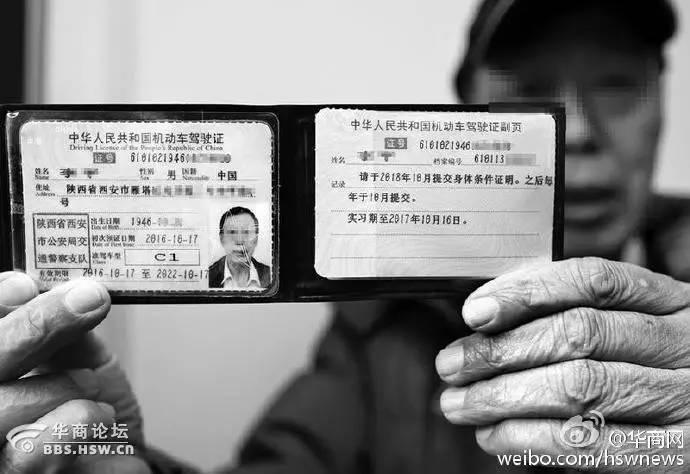 中华人民共和国机动车驾驶证
Driving Licence of the People's Republic of China
证号 6101021946
姓名 李
性别 男 国籍 中国
住址 陕西省西安市雁塔
陕西省西安
市公安局交
通警察支队
出生日期 1946-
初次领证日期 2016-10-17
准驾车型 C1
有效期限 2016-10-17 至 2022-10-17
中华人民共和国机动车驾驶证副页
证号 6101021946
姓名 档案编号 610113
记录 请于2018年10月提交身体条件证明。之后每
年于10月提交。
实习期至2017年10月16日。
华商论坛
BBS.HSW.CN
@华商网
weibo.com/hswnews